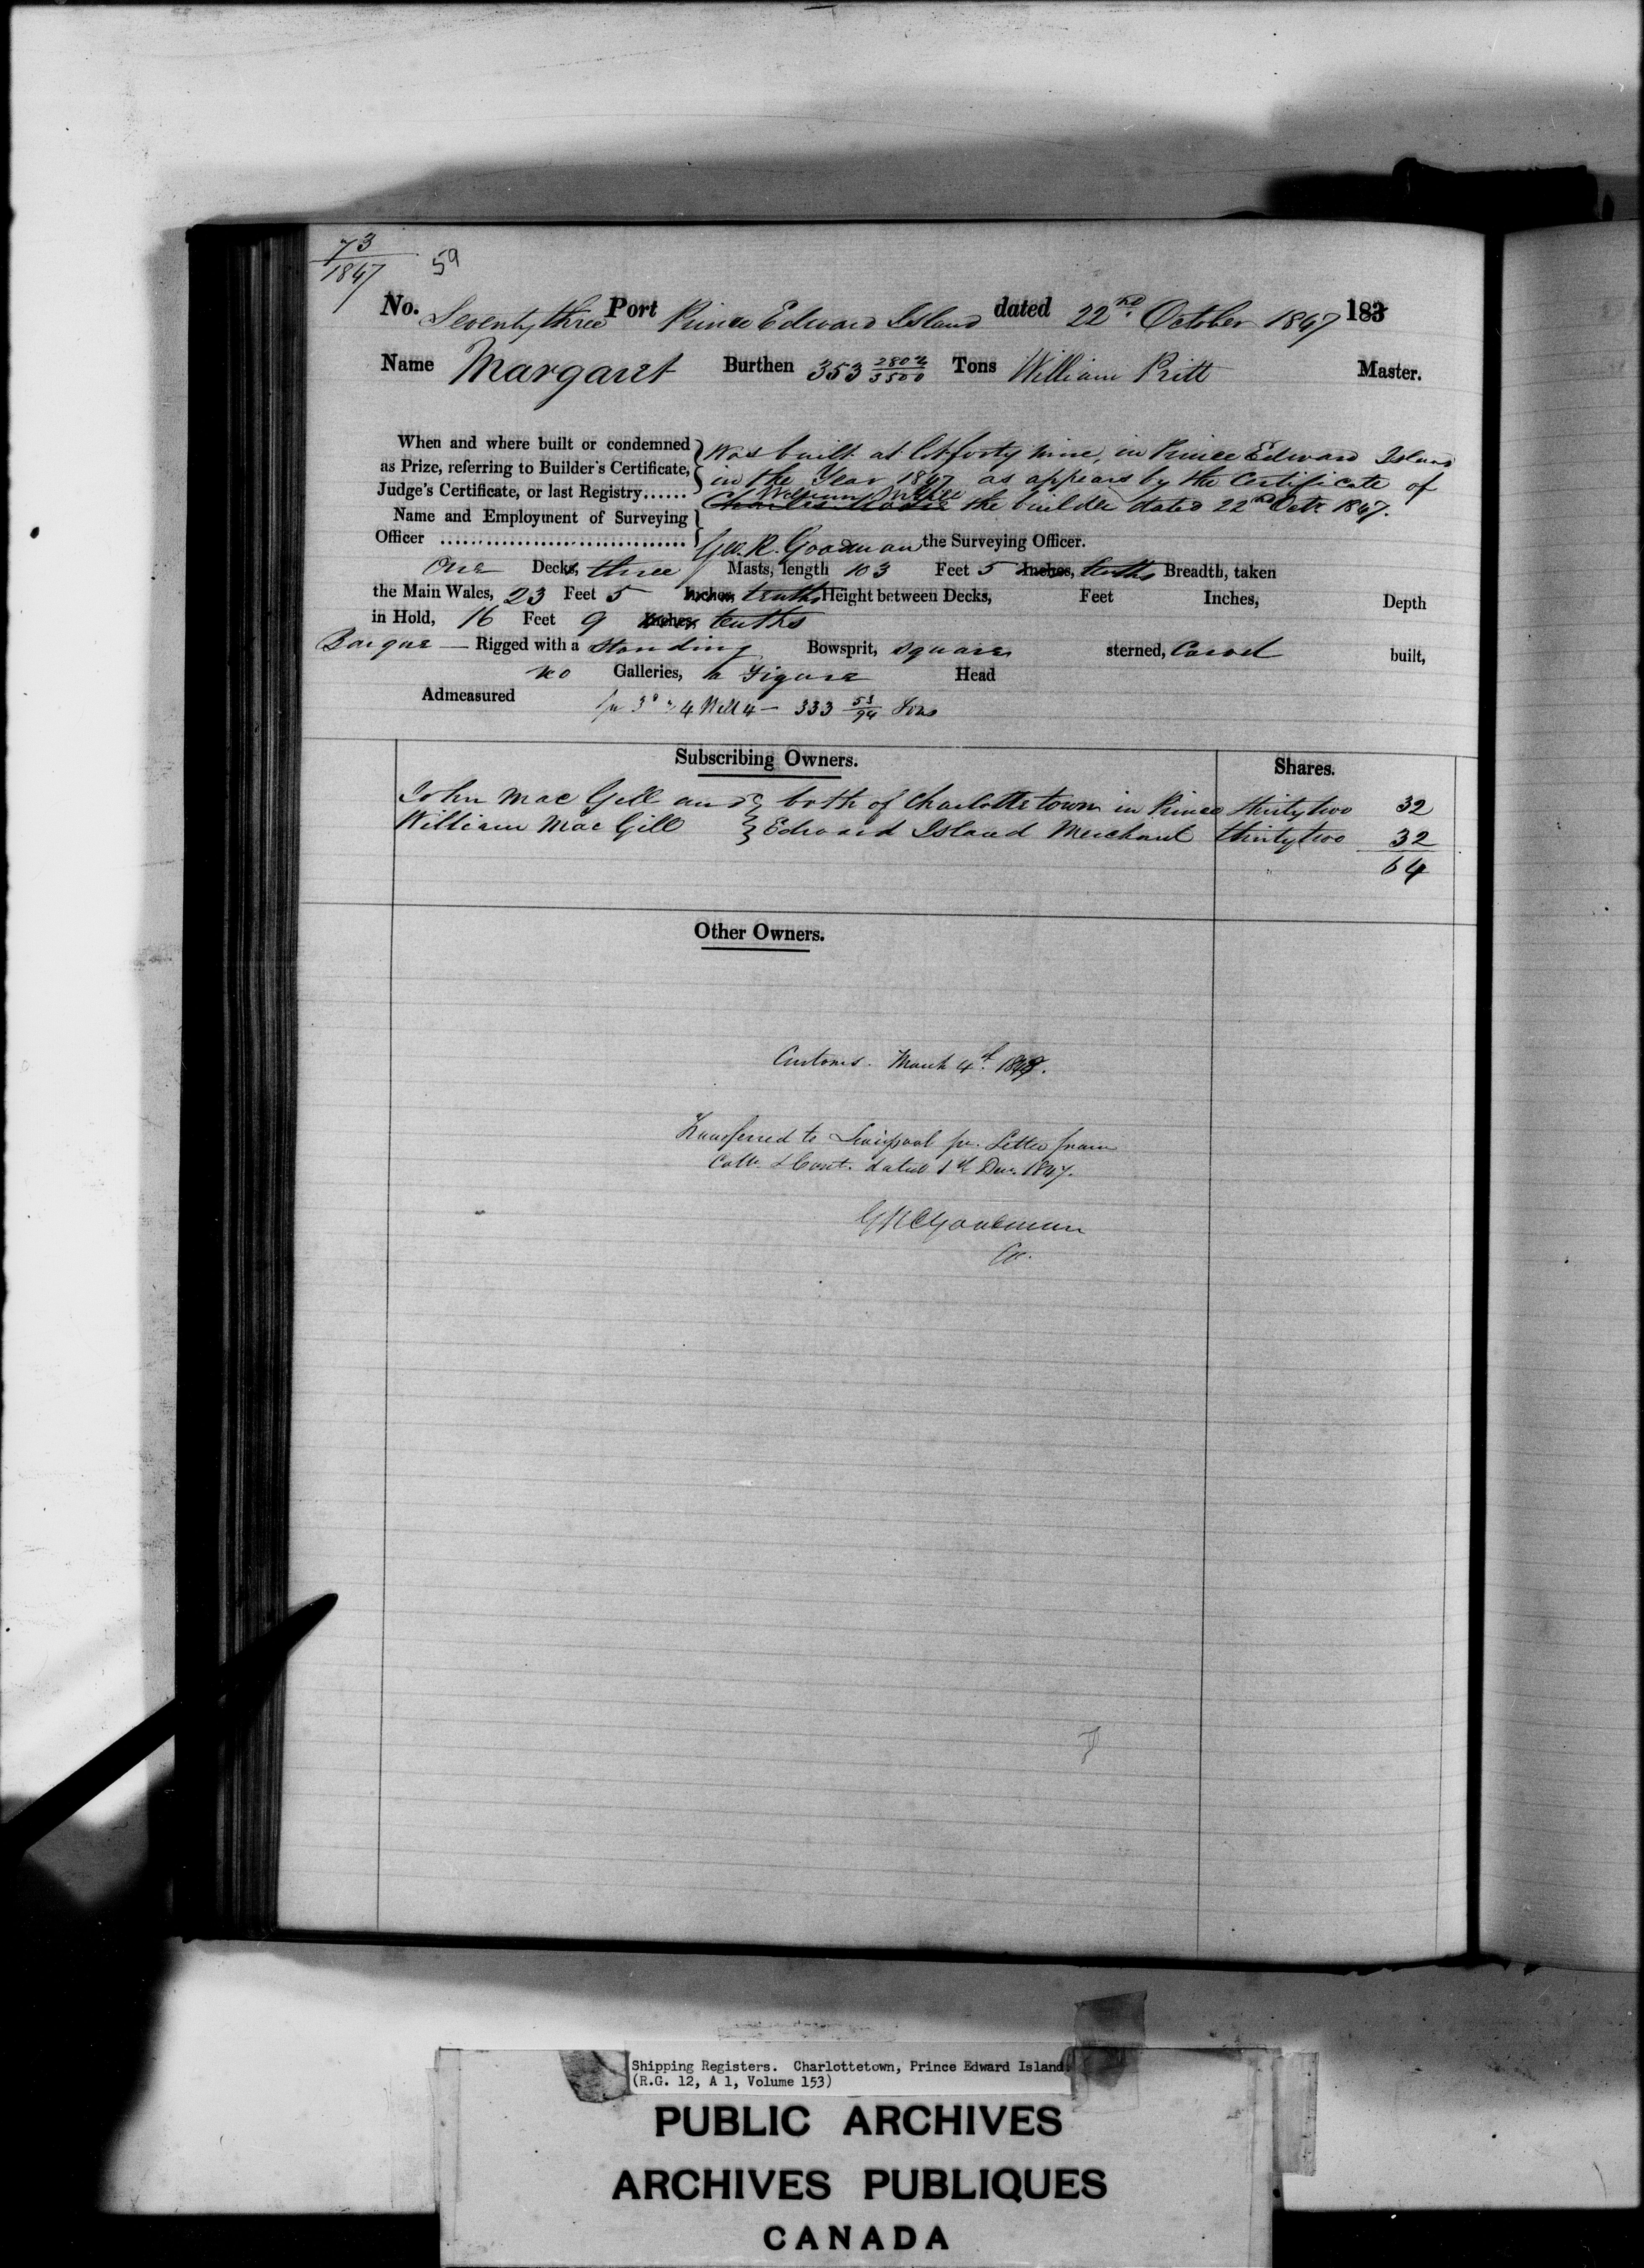 73
1847
59
No. Seventy three Port Prince Edward Island dated 22nd October 1847 183
Name Margaret Burthen 353 2802/3500 Tons William Pritt Master.
When and where built or condemned } Was built at Lot forty nine, in Prince Edward Island
as Prize, referring to Builder's Certificate, in the Year 1847 as appears by the Certificate of
Judge's Certificate, or last Registry...... William the builder dated 22nd Octr 1847.
Name and Employment of Surveying
Officer Geo. R. Goodman the Surveying Officer.
One Decks, three Masts, length 103 Feet 5 Inches, tenths Breadth, taken
the Main Wales, 23 Feet 5 Inches, tenths Height between Decks, Feet Inches, Depth
in Hold, 16 Feet 9 Inches, tenths
Barque — Rigged with a Standing Bowsprit, square sterned, Carvel built,
no Galleries, a Figure Head
Admeasured pr 3d & 4 Will 4 — 333 53/94 Tons
Subscribing Owners. Shares.
John Mac Gill and } both of Charlotte town in Prince thirty two 32
William Mac Gill } Edward Island Merchant thirty two 32
64
Other Owners.
Customs. March 4th 1848.
Transferred to Liverpool pr. Letter from
Collr & Cont. dated 1st Decr 1847.
GRGoodman
Co.
Shipping Registers. Charlottetown, Prince Edward Island.
(R.G. 12, A 1, Volume 153)
PUBLIC ARCHIVES
ARCHIVES PUBLIQUES
CANADA